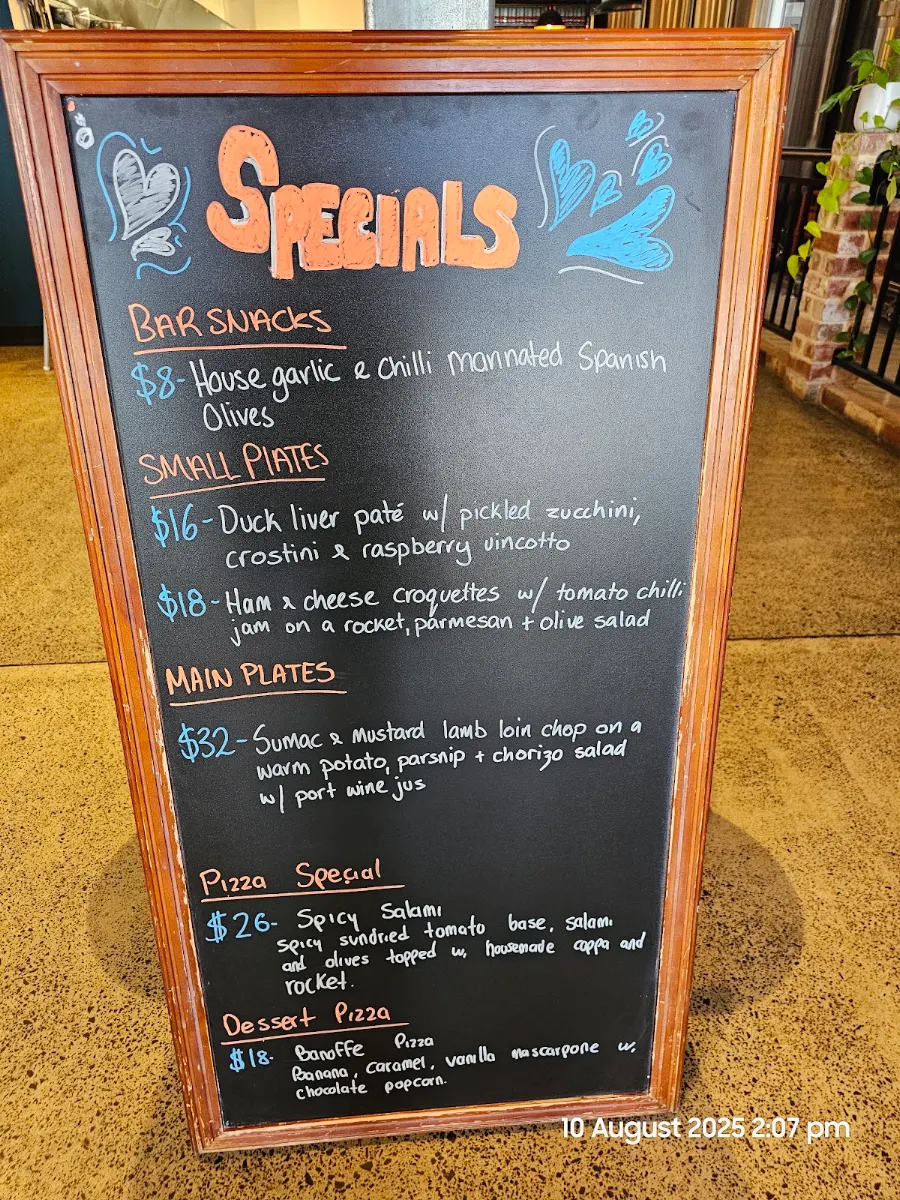 SPECIALS
BAR SNACKS
$8- House garlic & chilli marinated Spanish
Olives
SMALL PLATES
$16- Duck liver paté w/ pickled zucchini,
crostini & raspberry vincotto
$18- Ham & cheese croquettes w/ tomato chilli
jam on a rocket, parmesan + olive salad
MAIN PLATES
$32- Sumac & mustard lamb loin chop on a
warm potato, parsnip + chorizo salad
w/ port wine jus
Pizza Special
$26- Spicy Salami
spicy sundried tomato base, salami
and olives topped w, housemade coppa and
rocket.
Dessert Pizza
$18- Banoffe Pizza
Banana, caramel, vanilla mascarpone w,
chocolate popcorn.
10 August 2025 2:07 pm